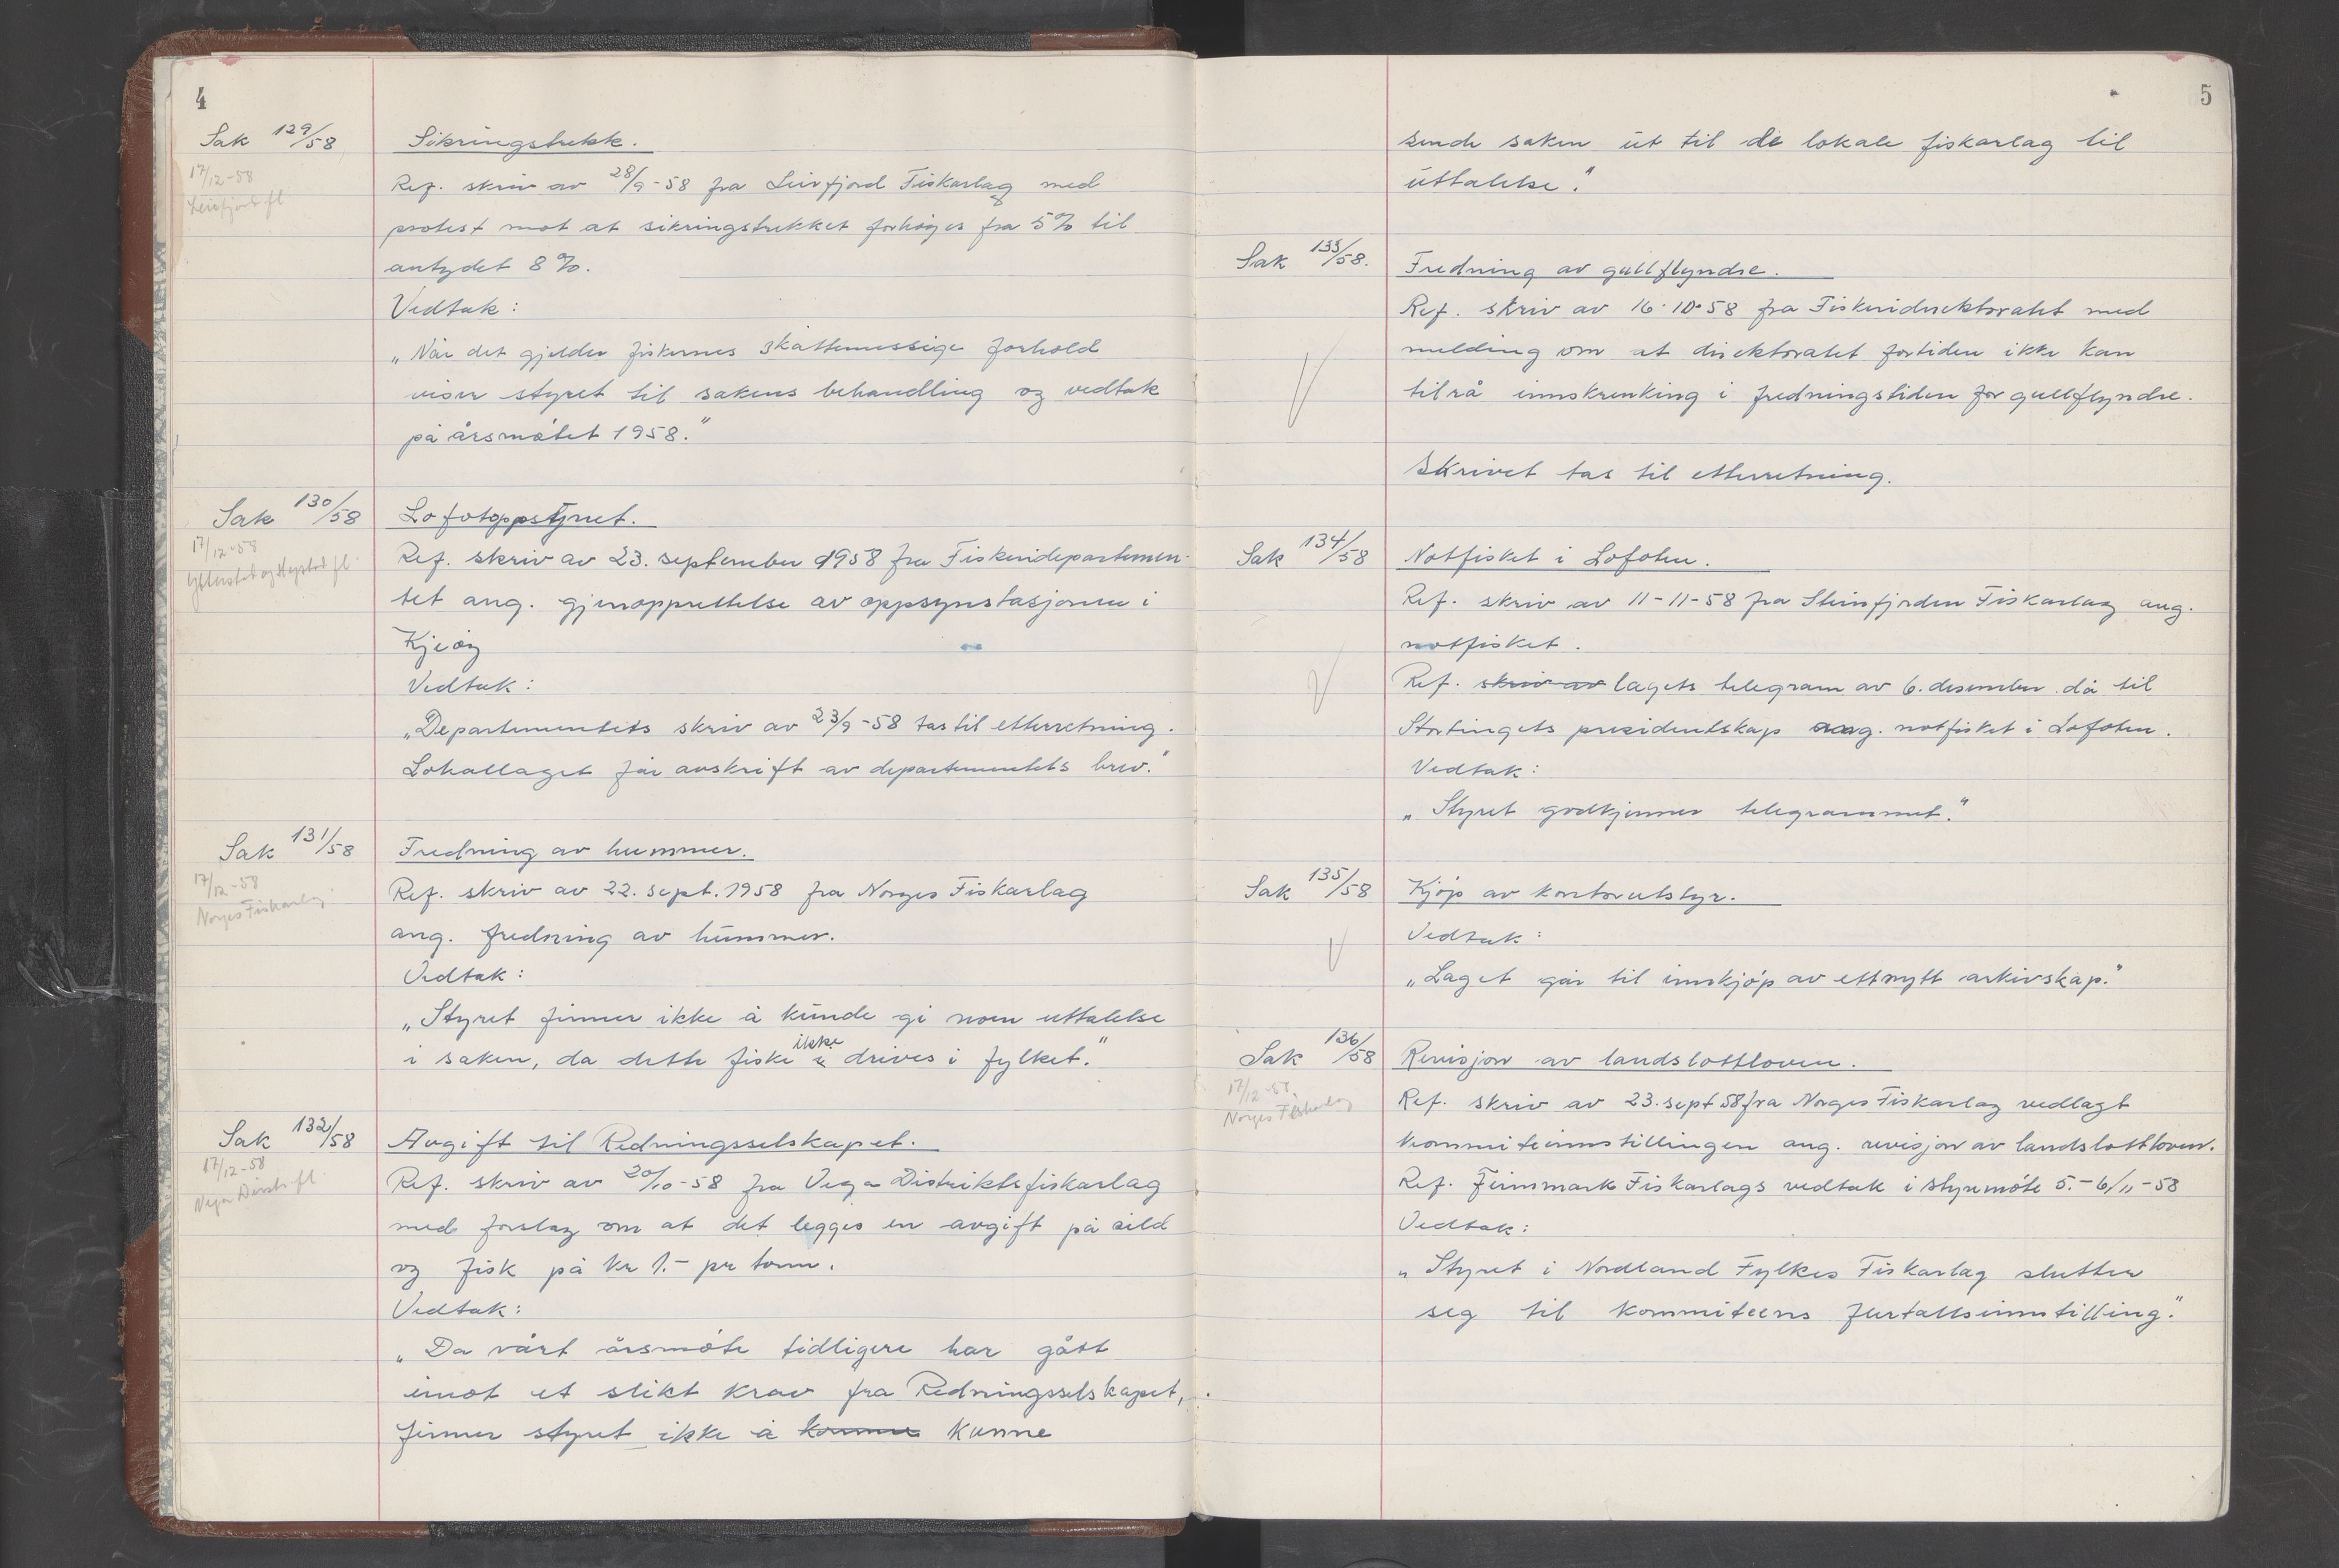 4
Sak 129/58
Sikringstrekk.
17/12-58
Leirfjord fl
Ref. skriv av 28/9-58 fra Leirfjord Fiskarlag med
protest mot at sikringstrekket forhøyes fra 5% til
antydet 8%.
Vedtak:
„Når det gjelder fiskernes skattemessige forhold
viser styret til sakens behandling og vedtak
på årsmøtet 1958."
Sak 130/58
Lofotoppsynet.
17/12-58
Ref. skriv av 23. september 1958 fra Fiskeridepartemen-
tet ang. gjenopprettelse av oppsynstasjonen i
Kjeøy
Vedtak:
„Departementets skriv av 23/9-58 tas til etterretning.
Lokallaget får avskrift av departementets brev."
Sak 131/58
Fredning av hummer.
17/12-58
Norges Fiskarlag
Ref. skriv av 22. sept. 1958 fra Norges Fiskarlag
ang. fredning av hummer.
Vedtak:
„Styret finner ikke å kunde gi noen uttalelse
i saken, da dette fiske ikke drives i fylket."
Sak 132/58
Avgift til Redningsselskapet.
17/12-58
Vega Distr. fl.
Ref. skriv av 20/10-58 fra Vega Distriktsfiskarlag
med forslag om at det legges en avgift på sild
og fisk på kr 1.- pr tonn.
Vedtak:
„Da vårt årsmøte tidligere har gått
imot et slikt krav fra Redningsselskapet,
finner styret ikke å kunne kunne
5
sende saken ut til de lokale fiskarlag til
uttalelse."
Sak 133/58.
Fredning av gullflyndre.
Ref. skriv av 16.10.58 fra Fiskeridirektoratet med
melding om at direktoratet fortiden ikke kan
tilrå innskrenking i fredningstiden for gullflyndre.
Skrivet tas til etterretning.
Sak 134/58
Notfisket i Lofoten.
Ref. skriv av 11-11-58 fra Steinfjorden Fiskarlag ang.
notfisket.
Ref. skriv av lagets telegram av 6. desember då til
Stortingets presidentskap ang. notfisket i Lofoten.
Vedtak:
„Styret godkjenner telegrammet."
Sak 135/58
Kjøp av kontorutstyr.
Vedtak:
„Laget går til innkjøp av ett nytt arkivskap."
Sak 136/58
Revisjon av landslottloven.
17/12-58
Norges Fiskarlag
Ref. skriv av 23. sept 58 fra Norges Fiskarlag vedlagt
kommiteinnstillingen ang. revisjon av landslottloven.
Ref. Finnmark Fiskarlags vedtak i styremøte 5.-6/11-58
Vedtak:
„Styret i Nordland Fylkes Fiskarlag slutter
seg til kommiteens flertallsinnstilling."